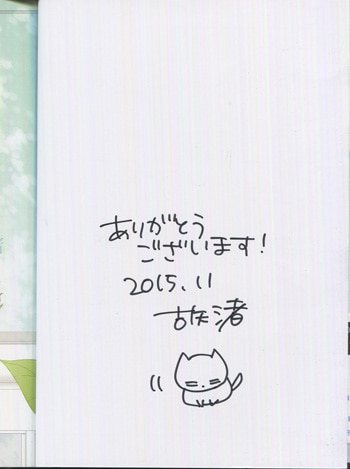 ありがとう
ございます!
2015.11
古矢渚